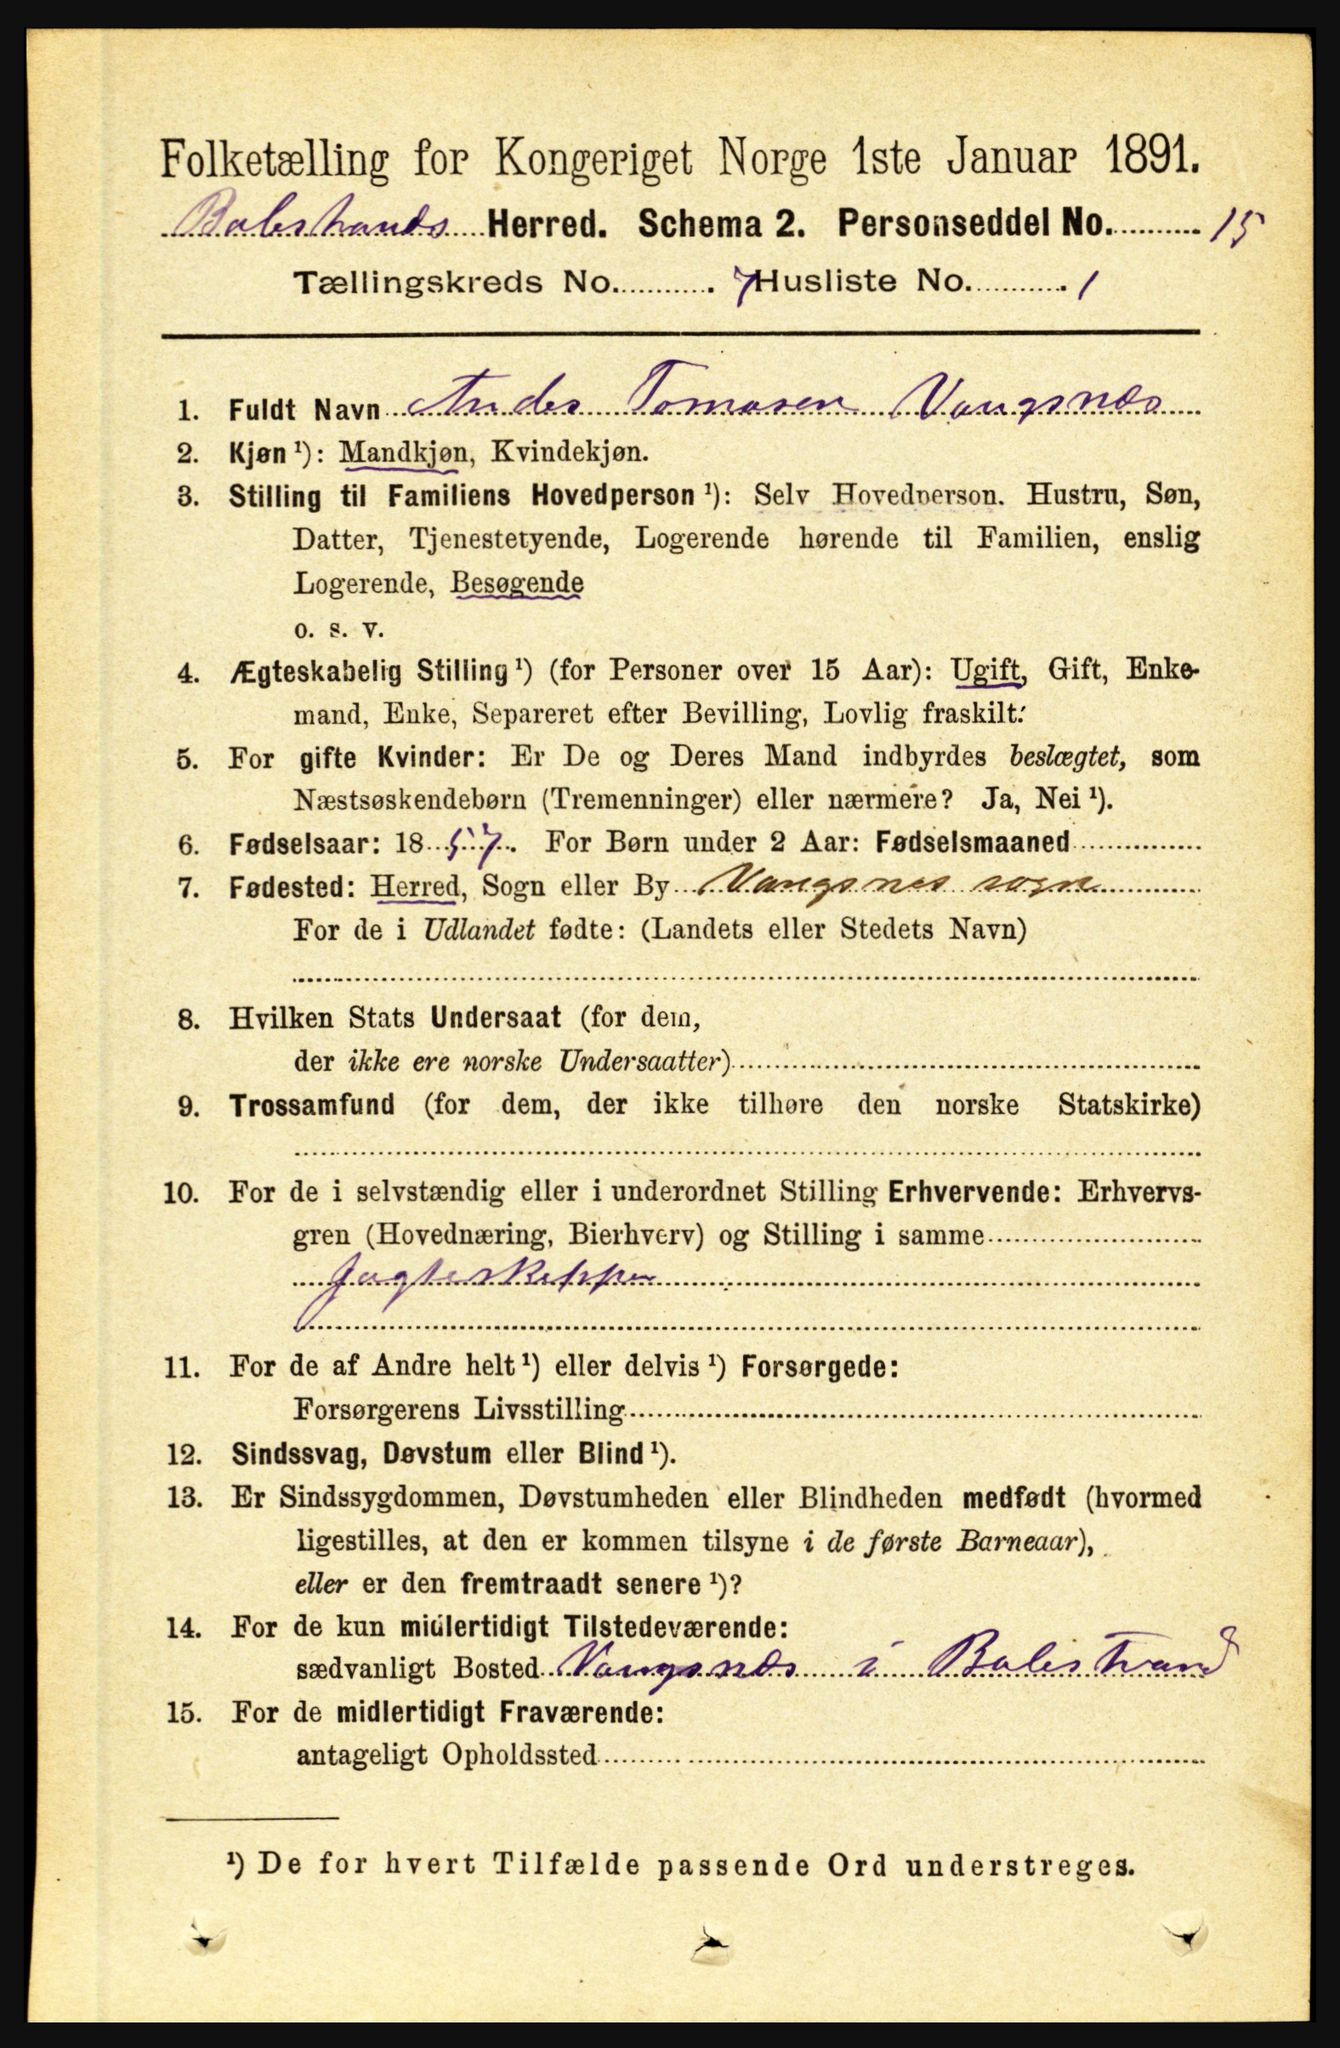 Folketælling for Kongeriget Norge 1ste Januar 1891.
Balestrands Herred. Schema 2. Personseddel No. 15
Tællingskreds No. 7 Husliste No. 1
1. Fuldt Navn Andes Tomasen Vangsnæs
2. Kjøn¹): Mandkjøn, Kvindekjøn.
3. Stilling til Familiens Hovedperson¹): Selv Hovedperson. Hustru, Søn,
Datter, Tjenestetyende, Logerende hørende til Familien, enslig
Logerende, Besøgende
o. s. v.
4. Ægteskabelig Stilling¹) (for Personer over 15 Aar): Ugift, Gift, Enke-
mand, Enke, Separeret efter Bevilling, Lovlig fraskilt.
5. For gifte Kvinder: Er De og Deres Mand indbyrdes beslægtet, som
Næstsøskendebørn (Tremenninger) eller nærmere? Ja, Nei¹).
6. Fødselsaar: 1857. For Børn under 2 Aar: Fødselsmaaned
7. Fødested: Herred, Sogn eller By Vangsnes sogn
For de i Udlandet fødte: (Landets eller Stedets Navn)
8. Hvilken Stats Undersaat (for dem,
der ikke ere norske Undersaatter)
9. Trossamfund (for dem, der ikke tilhøre den norske Statskirke)
10. For de i selvstændig eller i underordnet Stilling Erhvervende: Erhvervs-
gren (Hovednæring, Bierhverv) og Stilling i samme
Jagteskipper
11. For de af Andre helt¹) eller delvis¹) Forsørgede:
Forsørgerens Livsstilling
12. Sindssvag, Døvstum eller Blind¹).
13. Er Sindssygdommen, Døvstumheden eller Blindheden medfødt (hvormed
ligestilles, at den er kommen tilsyne i de første Barneaar),
eller er den fremtraadt senere¹)?
14. For de kun midlertidigt Tilstedeværende:
sædvanligt Bosted Vangsnæs i Balestrand
15. For de midlertidigt Fraværende:
antageligt Opholdssted
¹) De for hvert Tilfælde passende Ord understreges.